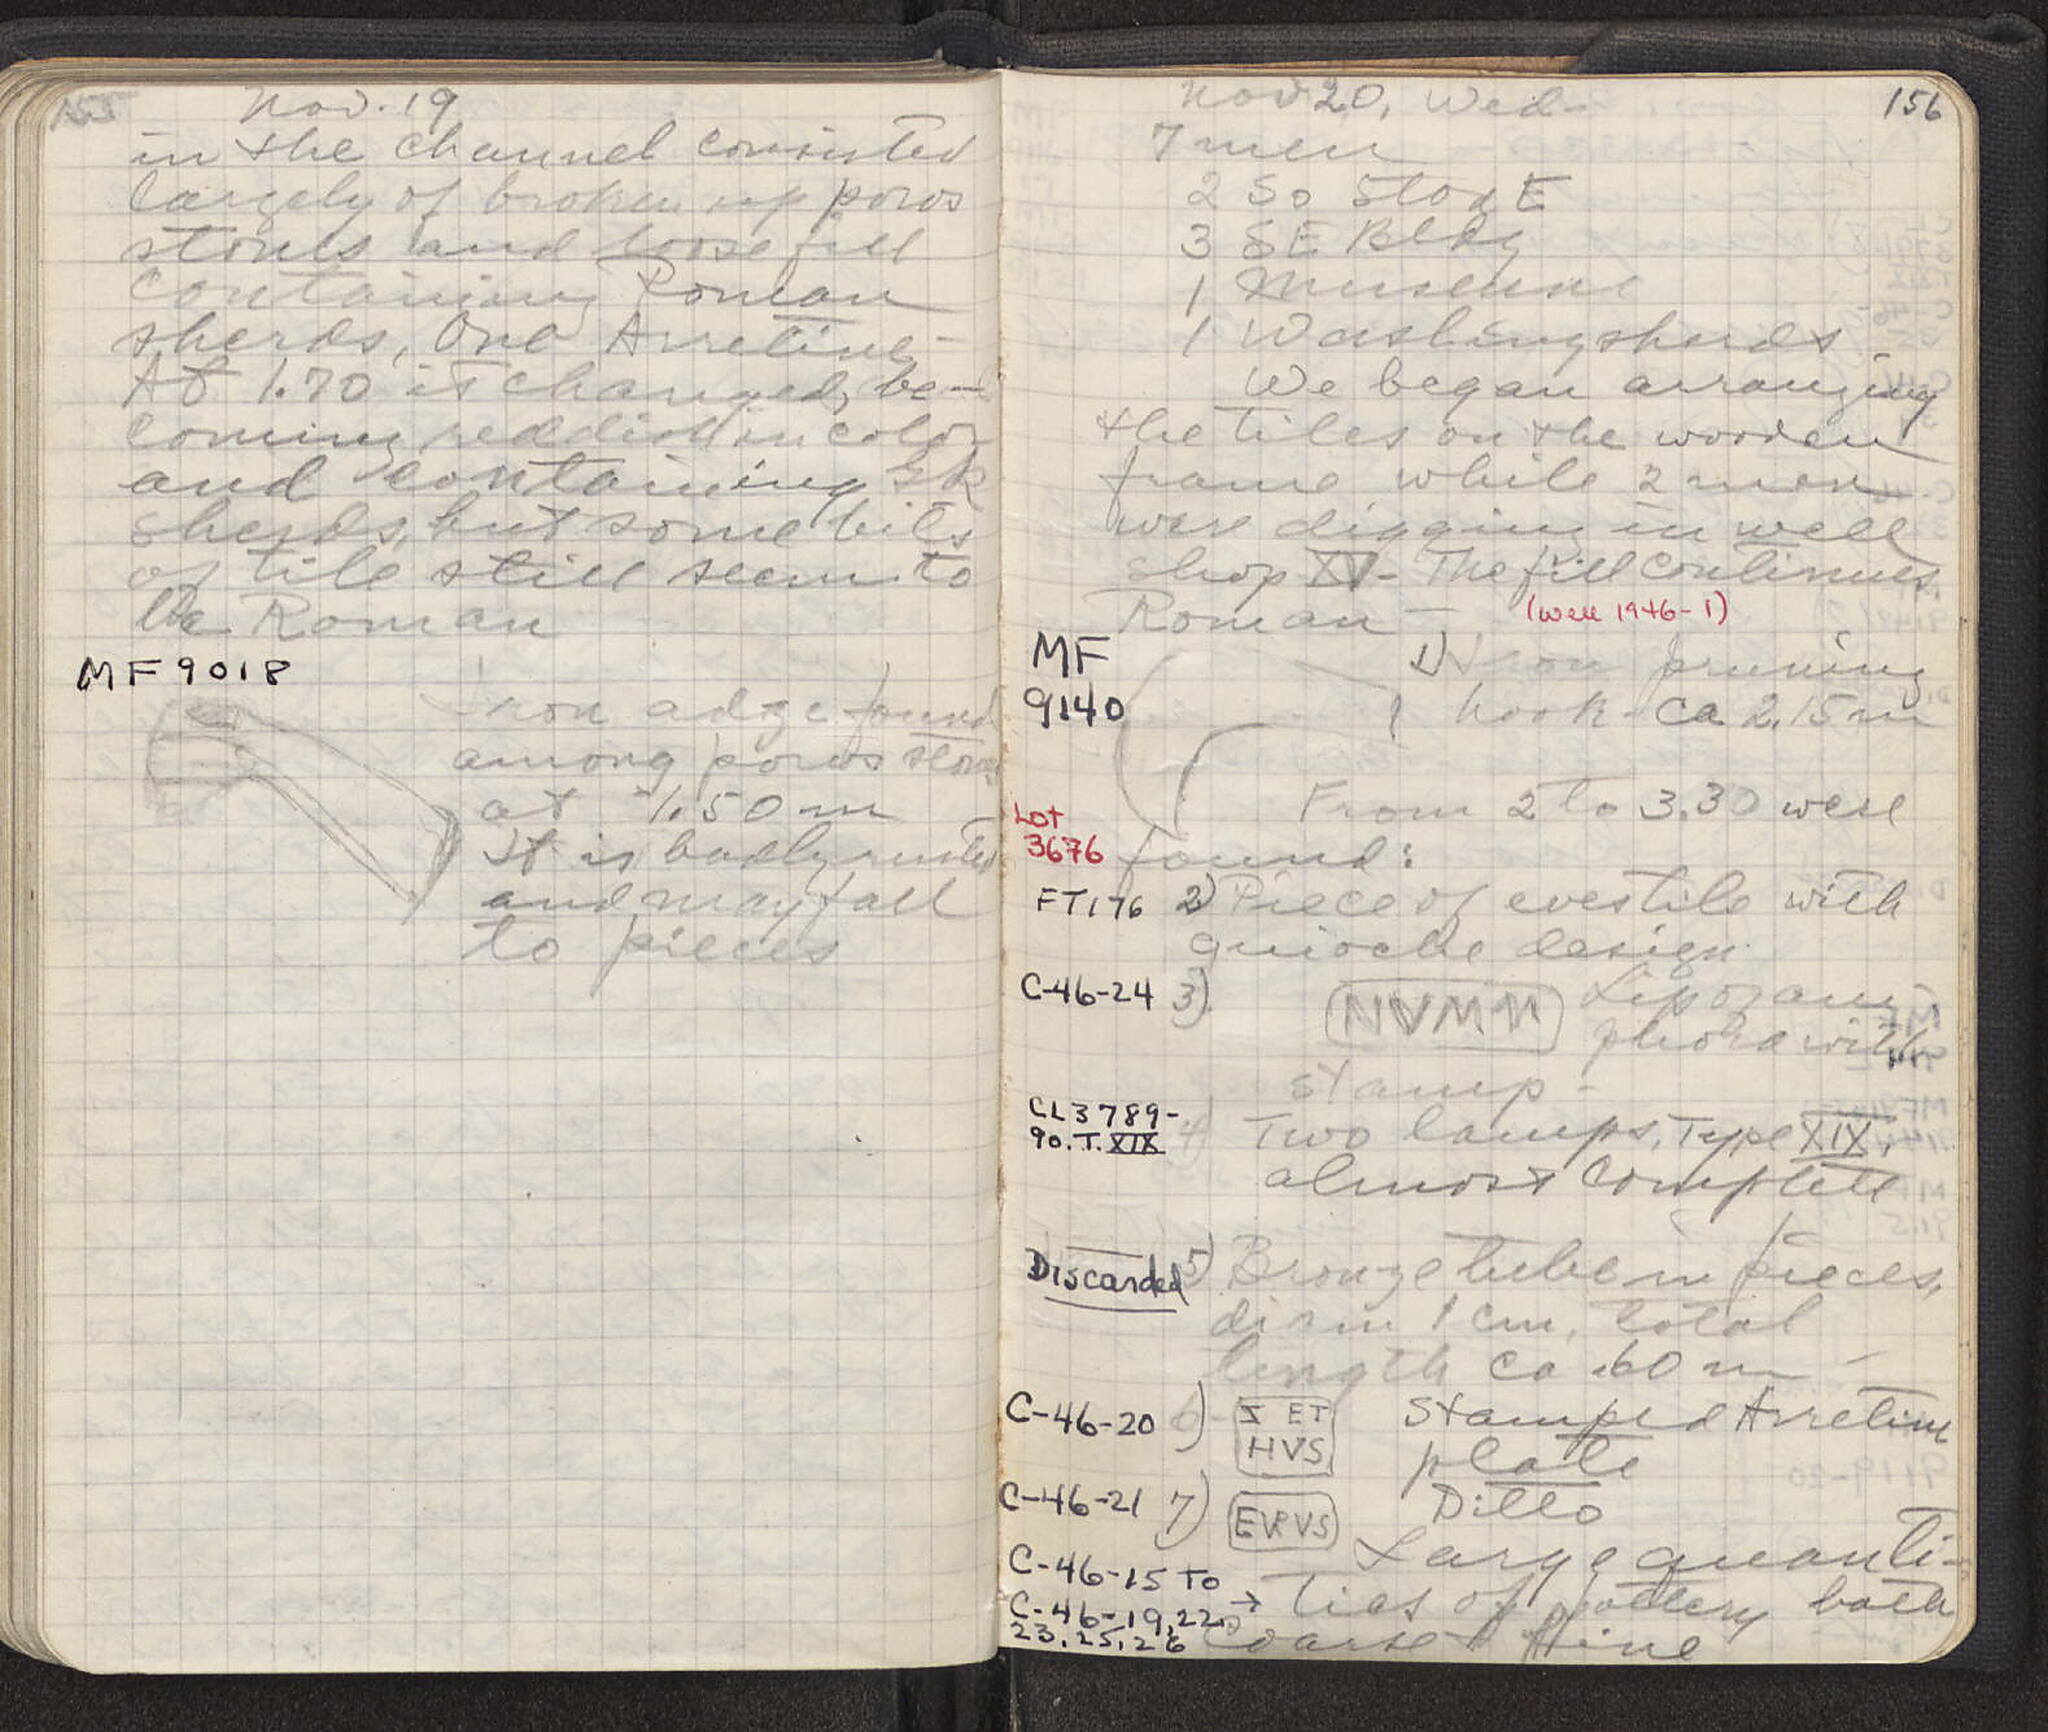 155
Nov. 19
in the channel consisted
largely of broken up poros
stones and loose fill
containing Roman
sherds, One Arretine -
At 1.70 it changed, be-
coming reddish in color
and containing Gk
sherds, but some bits
of tile still seem to
be Roman
MF 9018
Iron adze found
among poros stones
at -1.50 m
It is badly rusted
and may fall
to pieces
156
Nov 20, Wed-
7 men
2 So Stoa E
3 SE Bldg
1 Museum
1 Washing sherds
We began arranging
the tiles on the wooden
frame while 2 men
were digging in well
shop XV - The fill continues
Roman -
(well 1946-1)
MF
9140
1) Iron pruning
hook - ca 2.15 m
From 2 to 3.30 were
Lot
3676
found:
FT176 2) Piece of eves tile with
guioche design
C-46-24 3) NVMM Leg of am-
phora with
stamp -
CL 3789-
90. T. XIX
4) Two lamps, Type XIX,
almost complete
Discarded 5) Bronze tube in pieces,
diam 1 cm, total
length ca .60 m -
C-46-20 6) S ET
HVS
Stamped Arretine
plate
C-46-21 7) EVRVS Ditto
Large quanti-
C-46-15 to
C-46-19, 22,
23, 25, 26
→ ties of pottery both
coarse + fine